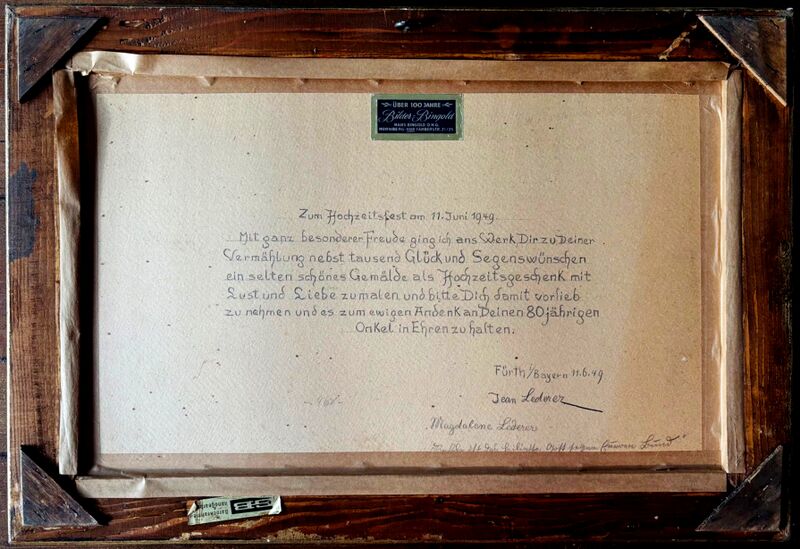 ÜBER 100 JAHRE
Bilder-Bingold
HANS BINGOLD O.H.G.
Zum Hochzeitsfest am 11. Juni 1949.
Mit ganz besonderer Freude ging ich ans Werk Dir zu Deiner
Vermählung nebst tausend Glück und Segenswünschen
ein selten schönes Gemälde als Hochzeitsgeschenk mit
Lust und Liebe zu malen und bitte Dich damit vorlieb
zu nehmen und es zum ewigen Andenk an Deinen 80 jährigen
Onkel in Ehren zu halten.
Fürth i/Bayern 11.6.49
Jean Lederer
Magdalene Lederer
Gott segne Eueren Bund"